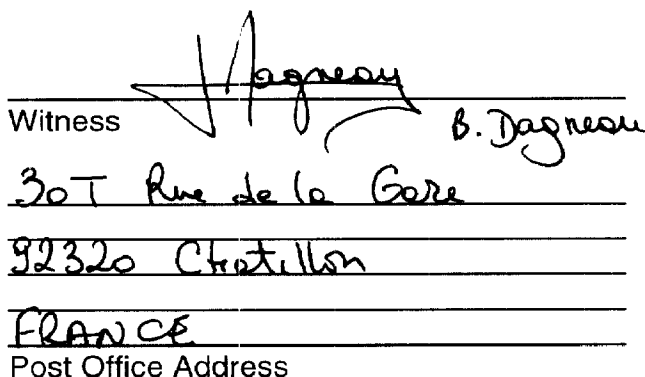 Dagneau
Witness
B. Dagneau
30T Rue de la Gare
92320 Chatillon
FRANCE
Post Office Address